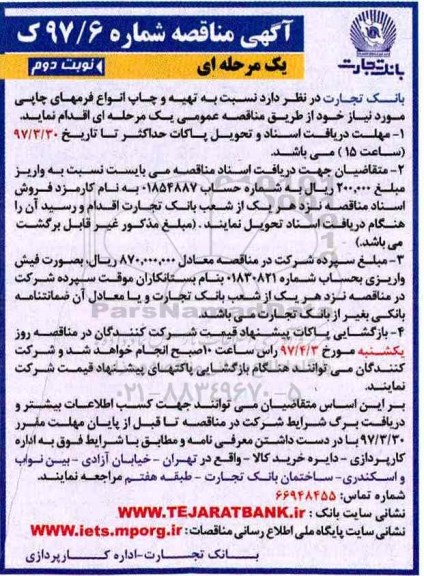 آگهی مناقصه شماره ۹۷/۶ ک
یک مرحله ای
نوبت دوم
بانک تجارت
بانک تجارت در نظر دارد نسبت به تهیه و چاپ انواع فرمهای چاپی
مورد نیاز خود از طریق مناقصه عمومی یک مرحله ای اقدام نماید.
۱- مهلت دریافت اسناد و تحویل پاکات حداکثر تا تاریخ ۹۷/۳/۳۰
(ساعت ۱۵) می باشد.
۲- متقاضیان جهت دریافت اسناد مناقصه می بایست نسبت به واریز
مبلغ ۲۰۰,۰۰۰ ریال به شماره حساب ۰۱۸۵۴۸۸۷ به نام کارمزد فروش
اسناد مناقصه نزد هر یک از شعب بانک تجارت اقدام و رسید آن را
هنگام دریافت اسناد تحویل نمایند . (مبلغ مذکور غیر قابل برگشت
می باشد)
۳- مبلغ سپرده شرکت در مناقصه معادل ۸۷۰,۰۰۰,۰۰۰ ریال، بصورت فیش
واریزی بحساب شماره ۰۱۸۳۰۸۲۱ بنام بستانکاران موقت سپرده شرکت
در مناقصه نزد هر یک از شعب بانک تجارت و یا معادل آن ضمانتنامه
بانکی بغیر از بانک تجارت می باشد.
۴- بازگشایی پاکات پیشنهاد قیمت شرکت کنندگان در مناقصه روز
یکشنبه مورخ ۹۷/۴/۳ راس ساعت ۱۰صبح انجام خواهد شد و شرکت
کنندگان می توانند هنگام بازگشایی پاکتهای پیشنهاد قیمت شرکت
نمایند.
بر این اساس متقاضیان می توانند جهت کسب اطلاعات بیشتر و
دریافت برگ شرایط شرکت در مناقصه تا قبل از پایان مهلت مقرر
۹۷/۳/۳۰ با در دست داشتن معرفی نامه و مطابق با شرایط فوق به اداره
کارپردازی - دایره خرید کالا - واقع در تهران - خیابان آزادی - بین نواب
و اسکندری- ساختمان بانک تجارت - طبقه هفتم مراجعه نمایند.
شماره تماس: ۶۶۹۴۸۴۵۵
نشانی سایت بانک : WWW.TEJARATBANK.ir
نشانی سایت پایگاه ملی اطلاع رسانی مناقصات : WWW.iets.mporg.ir
بانک تجارت-اداره کارپردازی
۰۲۱-۸۸۳۴۹۶۷۰-۵